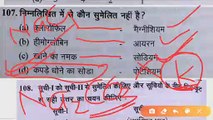 107. निम्नलिखित में से कौन सुमेलित नहीं है ?
(a) क्लोरोफिल मैग्नीशियम
(b) हीमोग्लोबिन आयरन
(c) खाने का नमक सोडियम
(d) कपड़े धोने का सोडा पोटैशियम
108. सूची-I को सूची-II से सुमेलित कीजिए और सूचियों के नीचे
सही उत्तर का चयन कीजिए
सूची-I